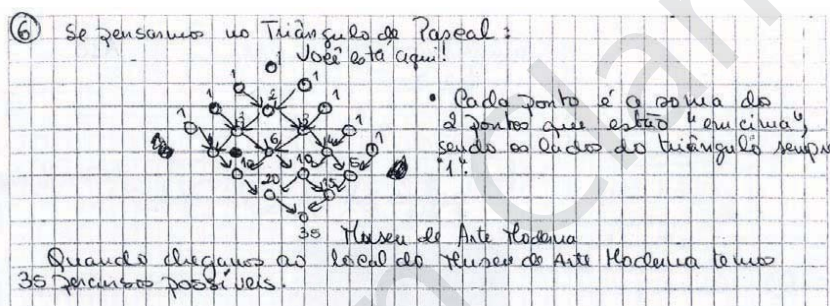 6 Se pensarmos no Triângulo de Pascal:
1 Você está aqui!
1 1
1 2 1
1 3 3 1
4 6 4 1
10 10 5
20 15
35 Museu de Arte Moderna
• Cada ponto é a soma do
2 pontos que estão "em cima",
sendo os lados do triângulo sempre
"1".
Quando chegamos ao local do Museu de Arte Moderna temos
35 percursos possíveis.